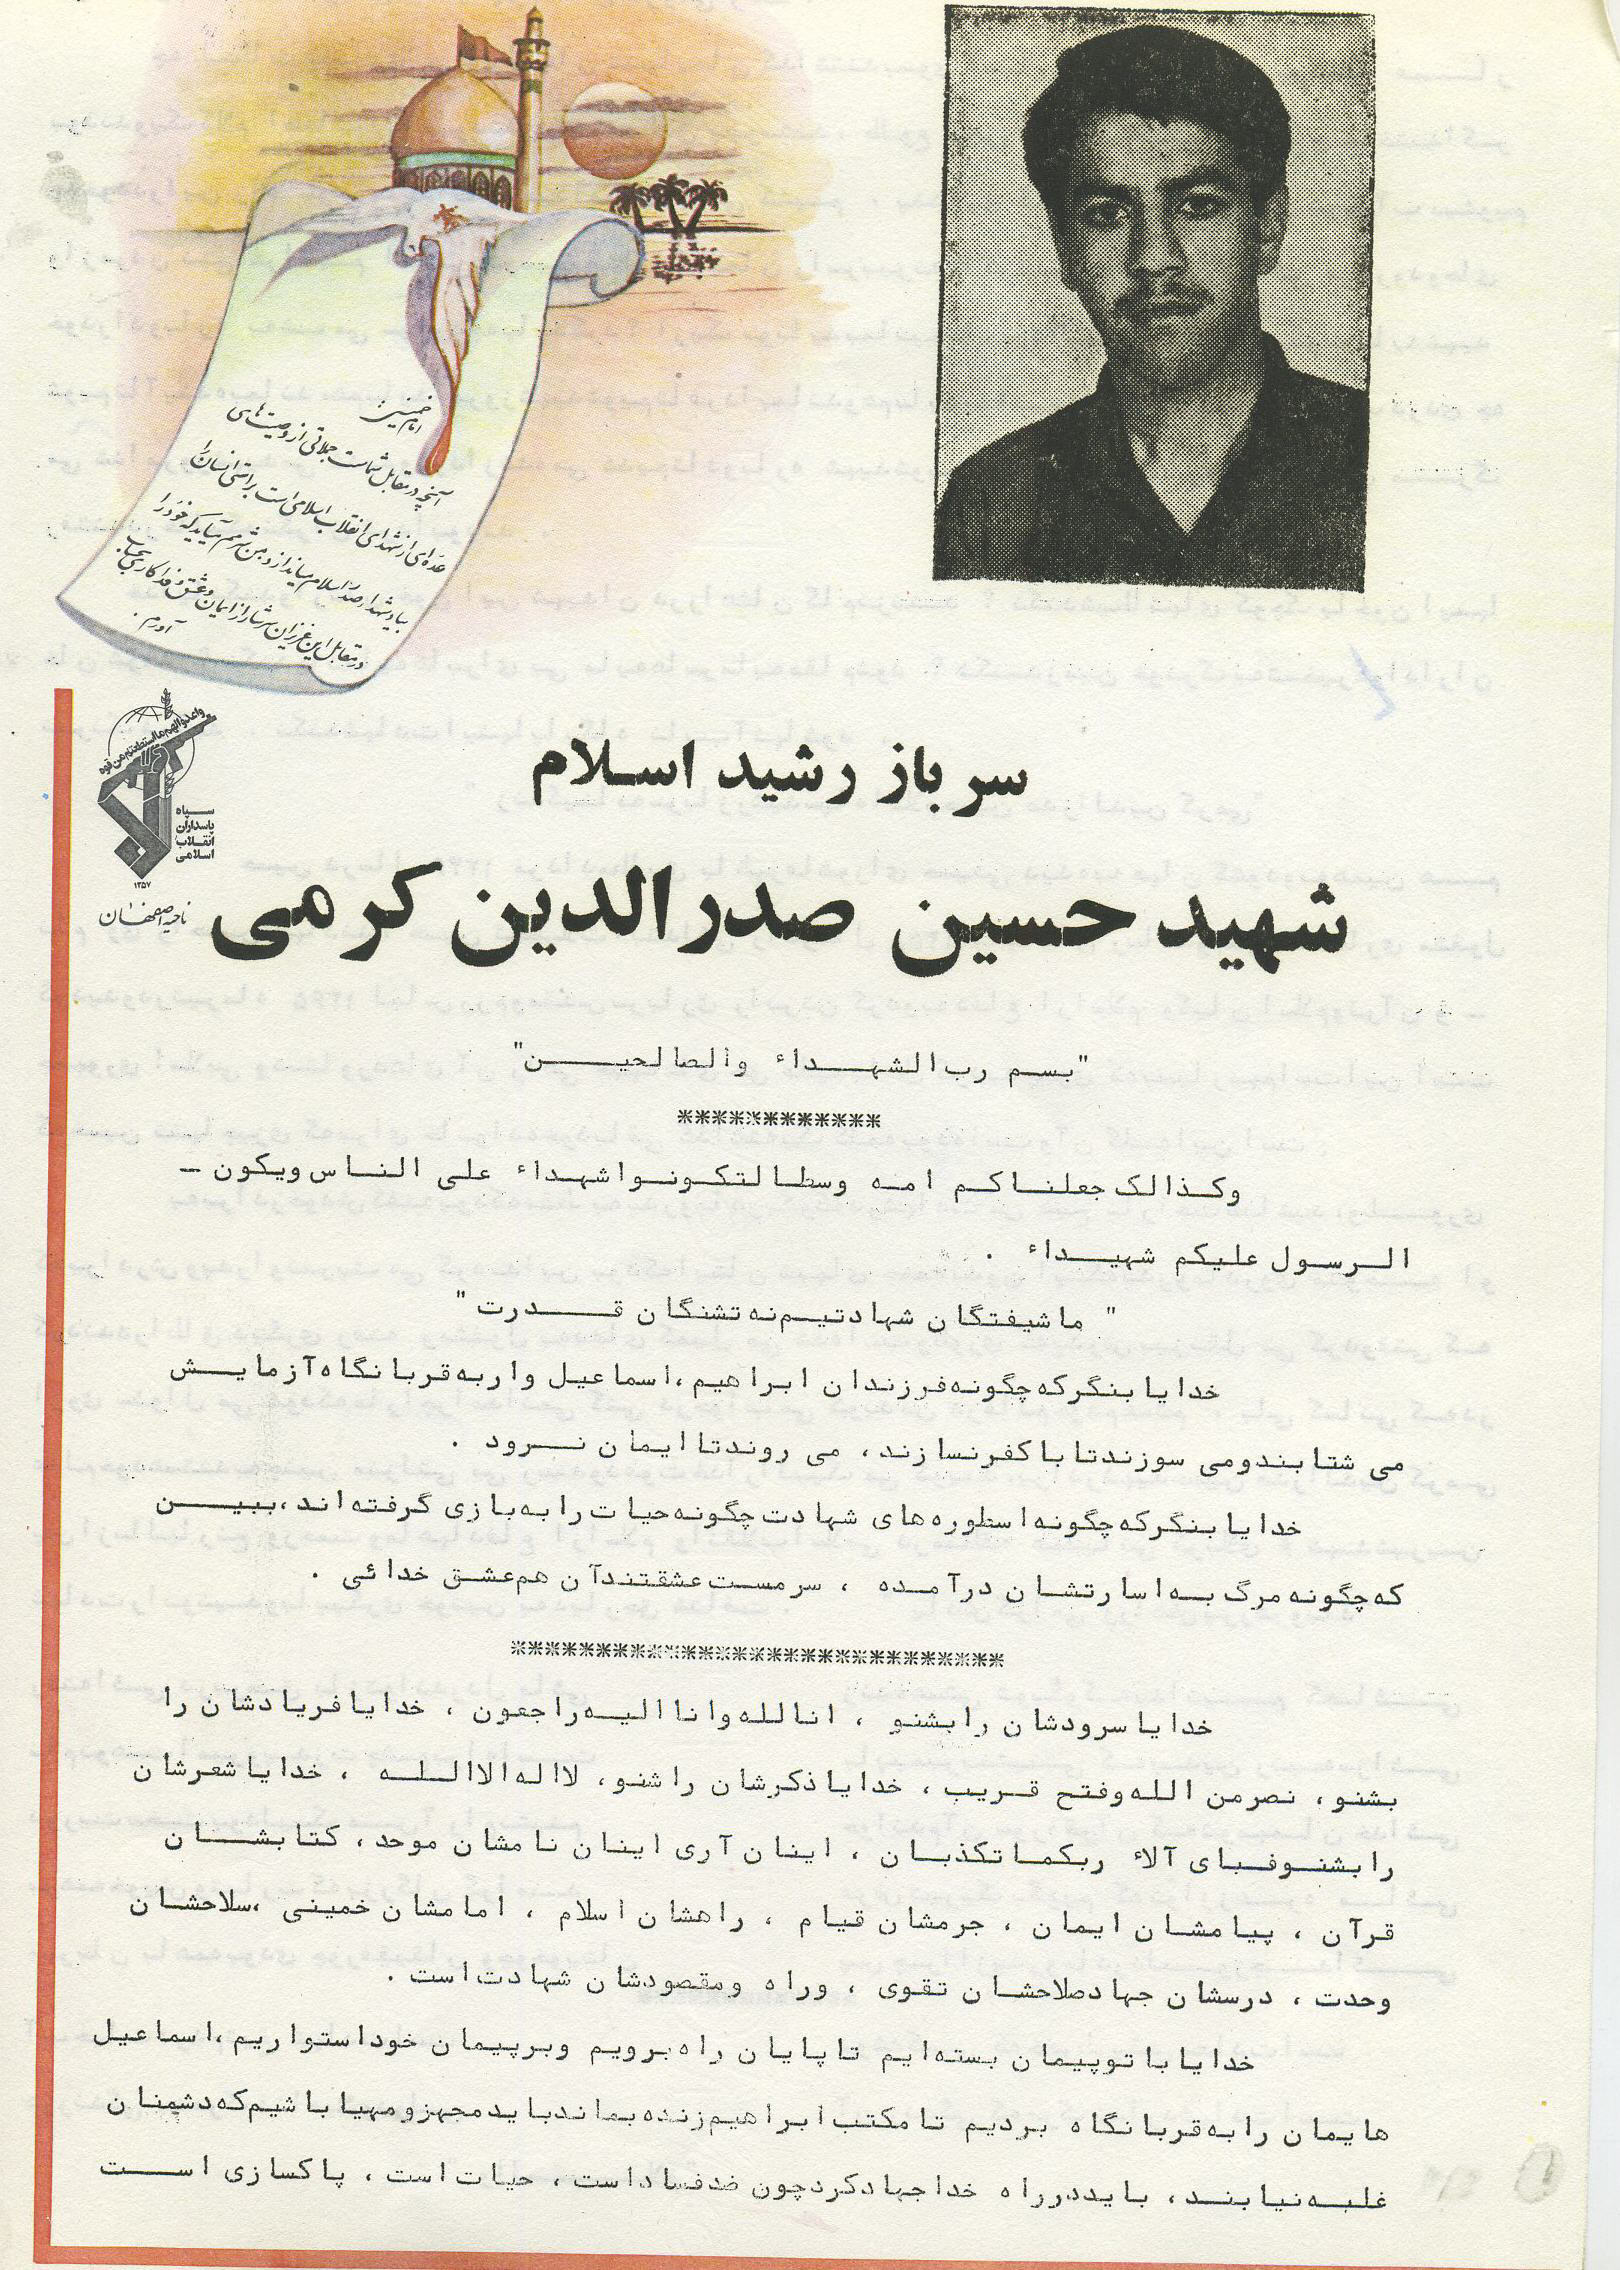 امام خمینی:
آنچه در مقابل شماست جملاتی از وصیت‌های
عده‌ای از شهدای انقلاب اسلامی است براستی انسان را
بیاد شهداء صدر اسلام میاندازد و من شرمم میآید که خود را
در مقابل این عزیزان سرشار از ایمان و عشق و فداکاری بحساب
آورم.
واعدوا لهم ما استطعتم من قوه
سپاه
پاسداران
انقلاب
اسلامی
۱۳۵۷
ناحیه اصفهان
سرباز رشید اسلام
شهید حسین صدرالدین کرمی
"بسم رب الشهداء والصالحین"
************
وکذالک جعلناکم امه وسطا لتکونوا شهداء علی الناس ویکون -
الرسول علیکم شهیداء .
" ما شیفتگان شهادتیم نه تشنگان قدرت "
خدایا بنگرکه چگونه فرزندان ابراهیم ،اسماعیل واربه قربانگاه آزمایش
می شتابند ومی سوزندتا باکفرنسازند، می روندتا ایمان نرود .
خدایا بنگرکه چگونه اسطوره های شهادت چگونه حیات رابه بازی گرفته اند ،ببین
که چگونه مرگ به اسارتشان درآمده ، سرمست عشقتندآن هم عشق خدائی .
*****************************
خدایا سرودشان رابشنو ، انالله وانا الیه راجعون ، خدایا فریادشان را
بشنو، نصرمن الله وفتح قریب ، خدایا ذکرشان راشنو، لااله الاالله ، خدایا شعرشان
رابشنو فبای آلاء ربکما تکذبان ، اینان آری اینان نامشان موحد، کتابشان
قرآن ، پیامشان ایمان ، جرمشان قیام ، راهشان اسلام ، امامشان خمینی ،سلاحشان
وحدت ، درسشان جهاد صلاحشان تقوی ، وراه ومقصودشان شهادت است .
خدایا با توپیمان بسته ایم تاپایان راه برویم وبرپیمان خوداستواریم ،اسماعیل
هایمان رابه قربانگاه بردیم تا مکتب ابراهیم زنده بماند باید مجهزومهیا باشیم که دشمنان
غلبه نیابند، بایددرراه خداجهادکردچون ضدفساداست ، حیات است ، پاکسازی است